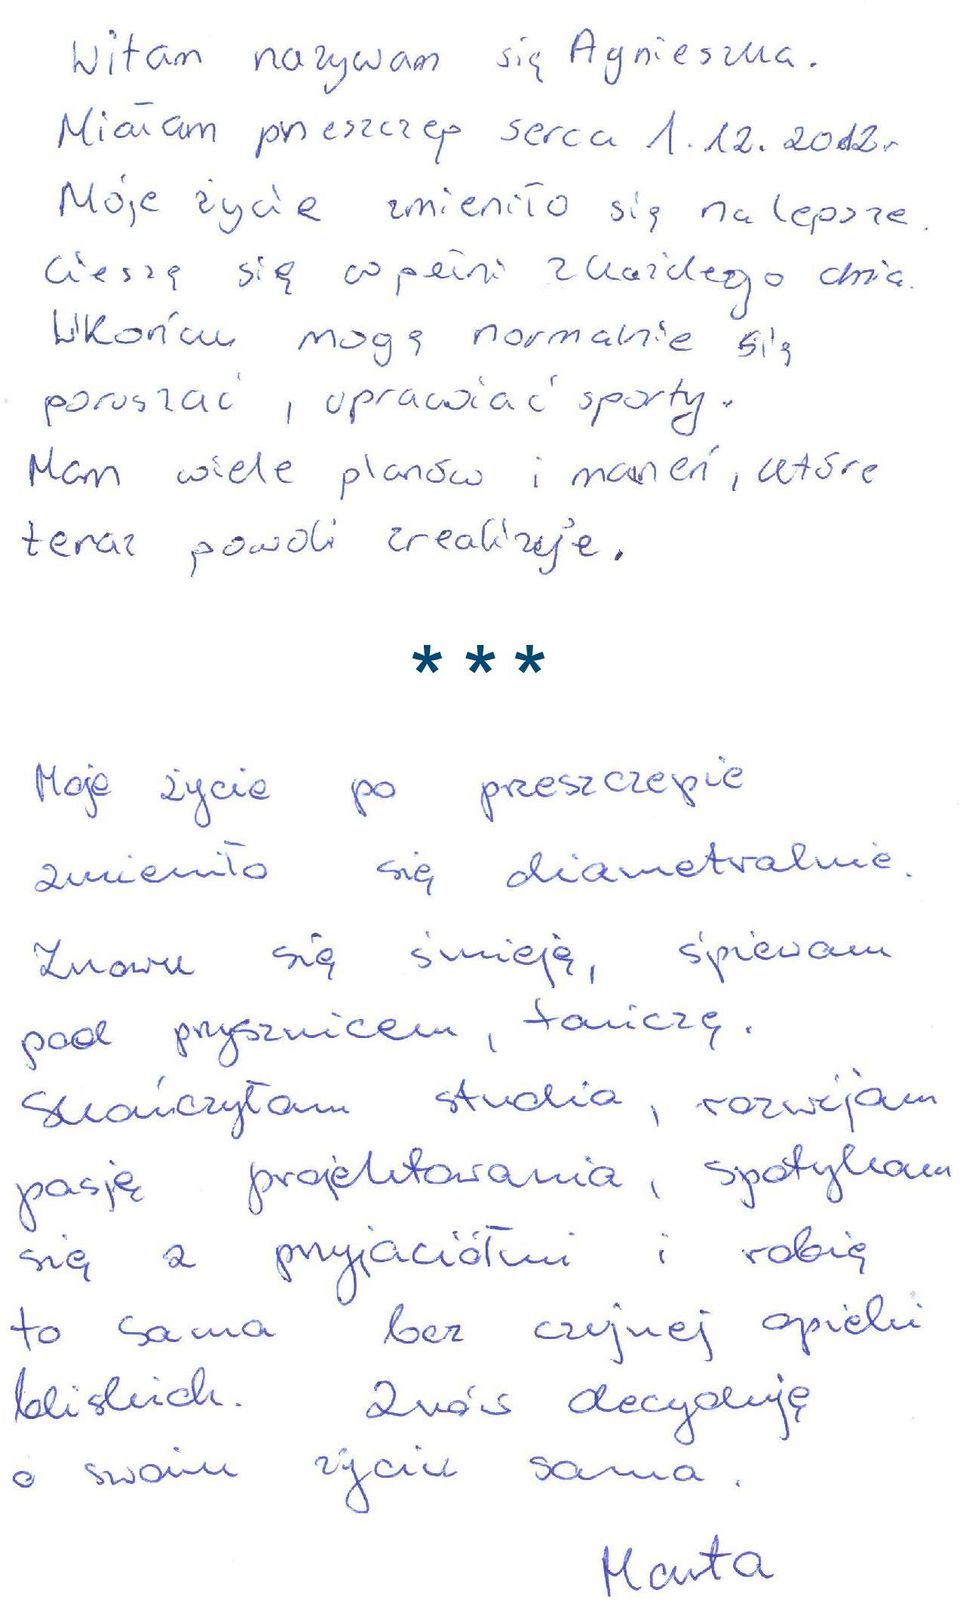 Witam nazywam się Agnieszka.
Miałam przeszczep serca 1.12.2012r
Moje życie zmieniło się na lepsze.
Cieszę się w pełni z każdego dnia.
Wkońcu mogę normalnie się
poruszać, uprawiać sporty.
Mam wiele planów i marzeń, które
teraz powoli zrealizuje.
* * *
Moje życie po przeszczepie
zmieniło się diametralnie.
Znowu się śmieję, śpiewam
pod prysznicem, tańczę.
Skończyłam studia, rozwijam
pasję projektowania, spotykam
się z przyjaciółmi i robię
to sama bez czujnej opieki
bliskich. Znów decyduję
o swoim życiu sama.
Marta